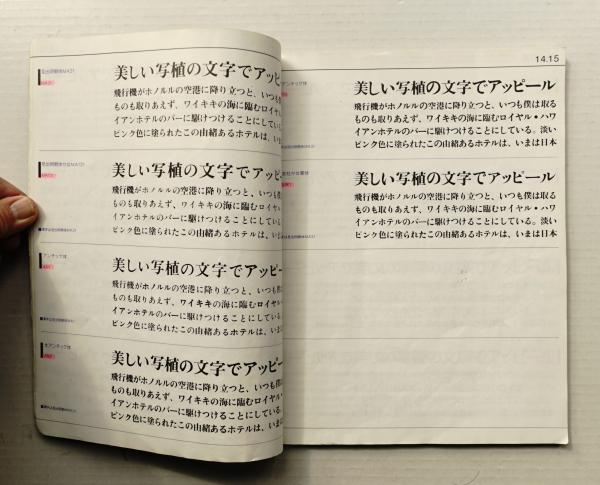 美しい写植の文字でアッピー
飛行機がホノルルの空港に降り立つと、いつも
ものも取りあえず、ワイキキの海に臨むロイヤル
イアンホテルのバーに駆けつけることにしている
ピンク色に塗られたこの由緒あるホテルは、いま
美しい写植の文字でアッピー
飛行機がホノルルの空港に降り立つと、いつも僕
ものも取りあえず、ワイキキの海に臨むロイヤ
イアンホテルのバーに駆けつけることにしている
ピンク色に塗られたこの由緒あるホテルは、い
アンチック体
美しい写植の文字でアッピー
飛行機がホノルルの空港に降り立つと、いつも僕
ものも取りあえず、ワイキキの海に臨むロイヤル
イアンホテルのバーに駆けつけることにしている
ピンク色に塗られたこの由緒あるホテルは、いま
太アンチック体
美しい写植の文字でアッピー
飛行機がホノルルの空港に降り立つと、いつも僕
ものも取りあえず、ワイキキの海に臨むロイヤル
イアンホテルのバーに駆けつけることにしている。
ピンク色に塗られたこの由緒あるホテルは、いまに
14.15
アンチック体
美しい写植の文字でアッピール
飛行機がホノルルの空港に降り立つと、いつも僕は取る
ものも取りあえず、ワイキキの海に臨むロイヤル・ハワ
イアンホテルのバーに駆けつけることにしている。淡い
ピンク色に塗られたこの由緒あるホテルは、いまは日本
美しい写植の文字でアッピール
飛行機がホノルルの空港に降り立つと、いつも僕は取る
ものも取りあえず、ワイキキの海に臨むロイヤル・ハワ
イアンホテルのバーに駆けつけることにしている。淡い
ピンク色に塗られたこの由緒あるホテルは、いまは日本